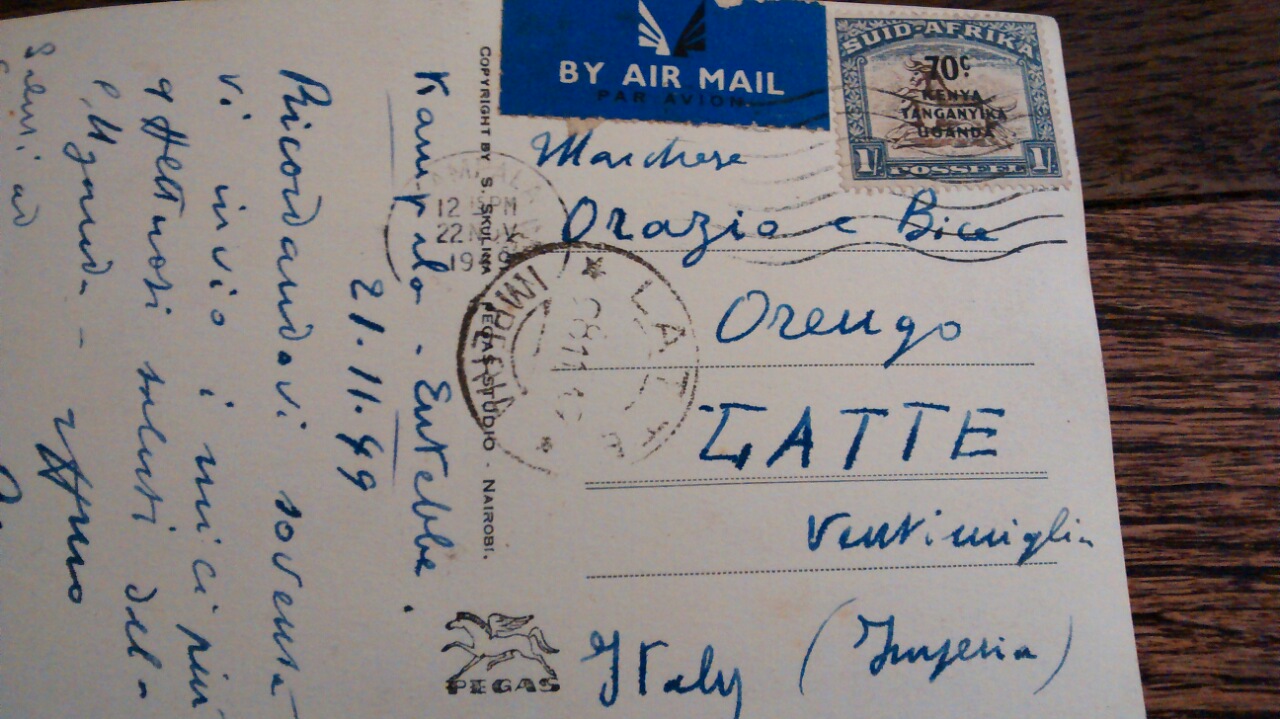 BY AIR MAIL
PAR AVION
SUID-AFRIKA
70c
KENYA
TANGANYIKA
UGANDA
1/- 1/-
POSSEEL
Marchese
Orazio e Bice
Orengo
LATTE
Ventimiglia
Italy (Imperia)
COPYRIGHT BY S. SKULINA PEGAS STUDIO - NAIROBI.
PEGAS
KAMPALA
12 PM
22 NOV
19
LATTE
IMPERIA
Kampala - Entebbe.
21.11.49
Ricordandovi sovente
vi invio i miei più
affettuosi saluti dal